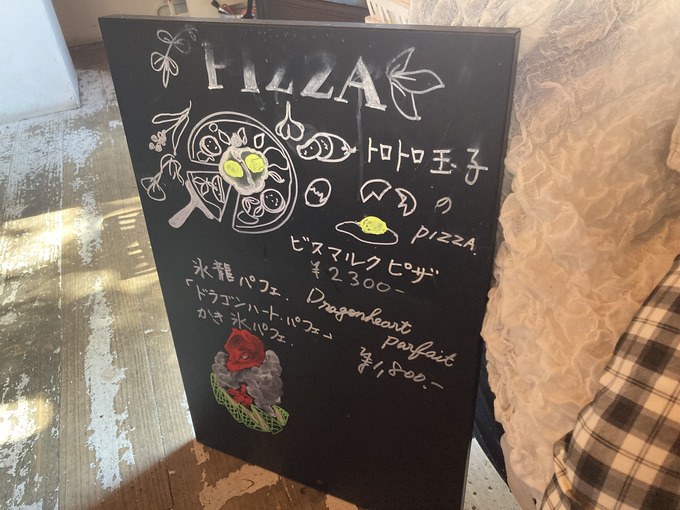 PIZZA
トロトロ玉子
の
PIZZA.
ビスマルクピザ
¥2300-
氷龍パフェ.
「ドラゴンハート・パフェ」
かき氷パフェ.
Dragonheart
parfait
¥1,800.-